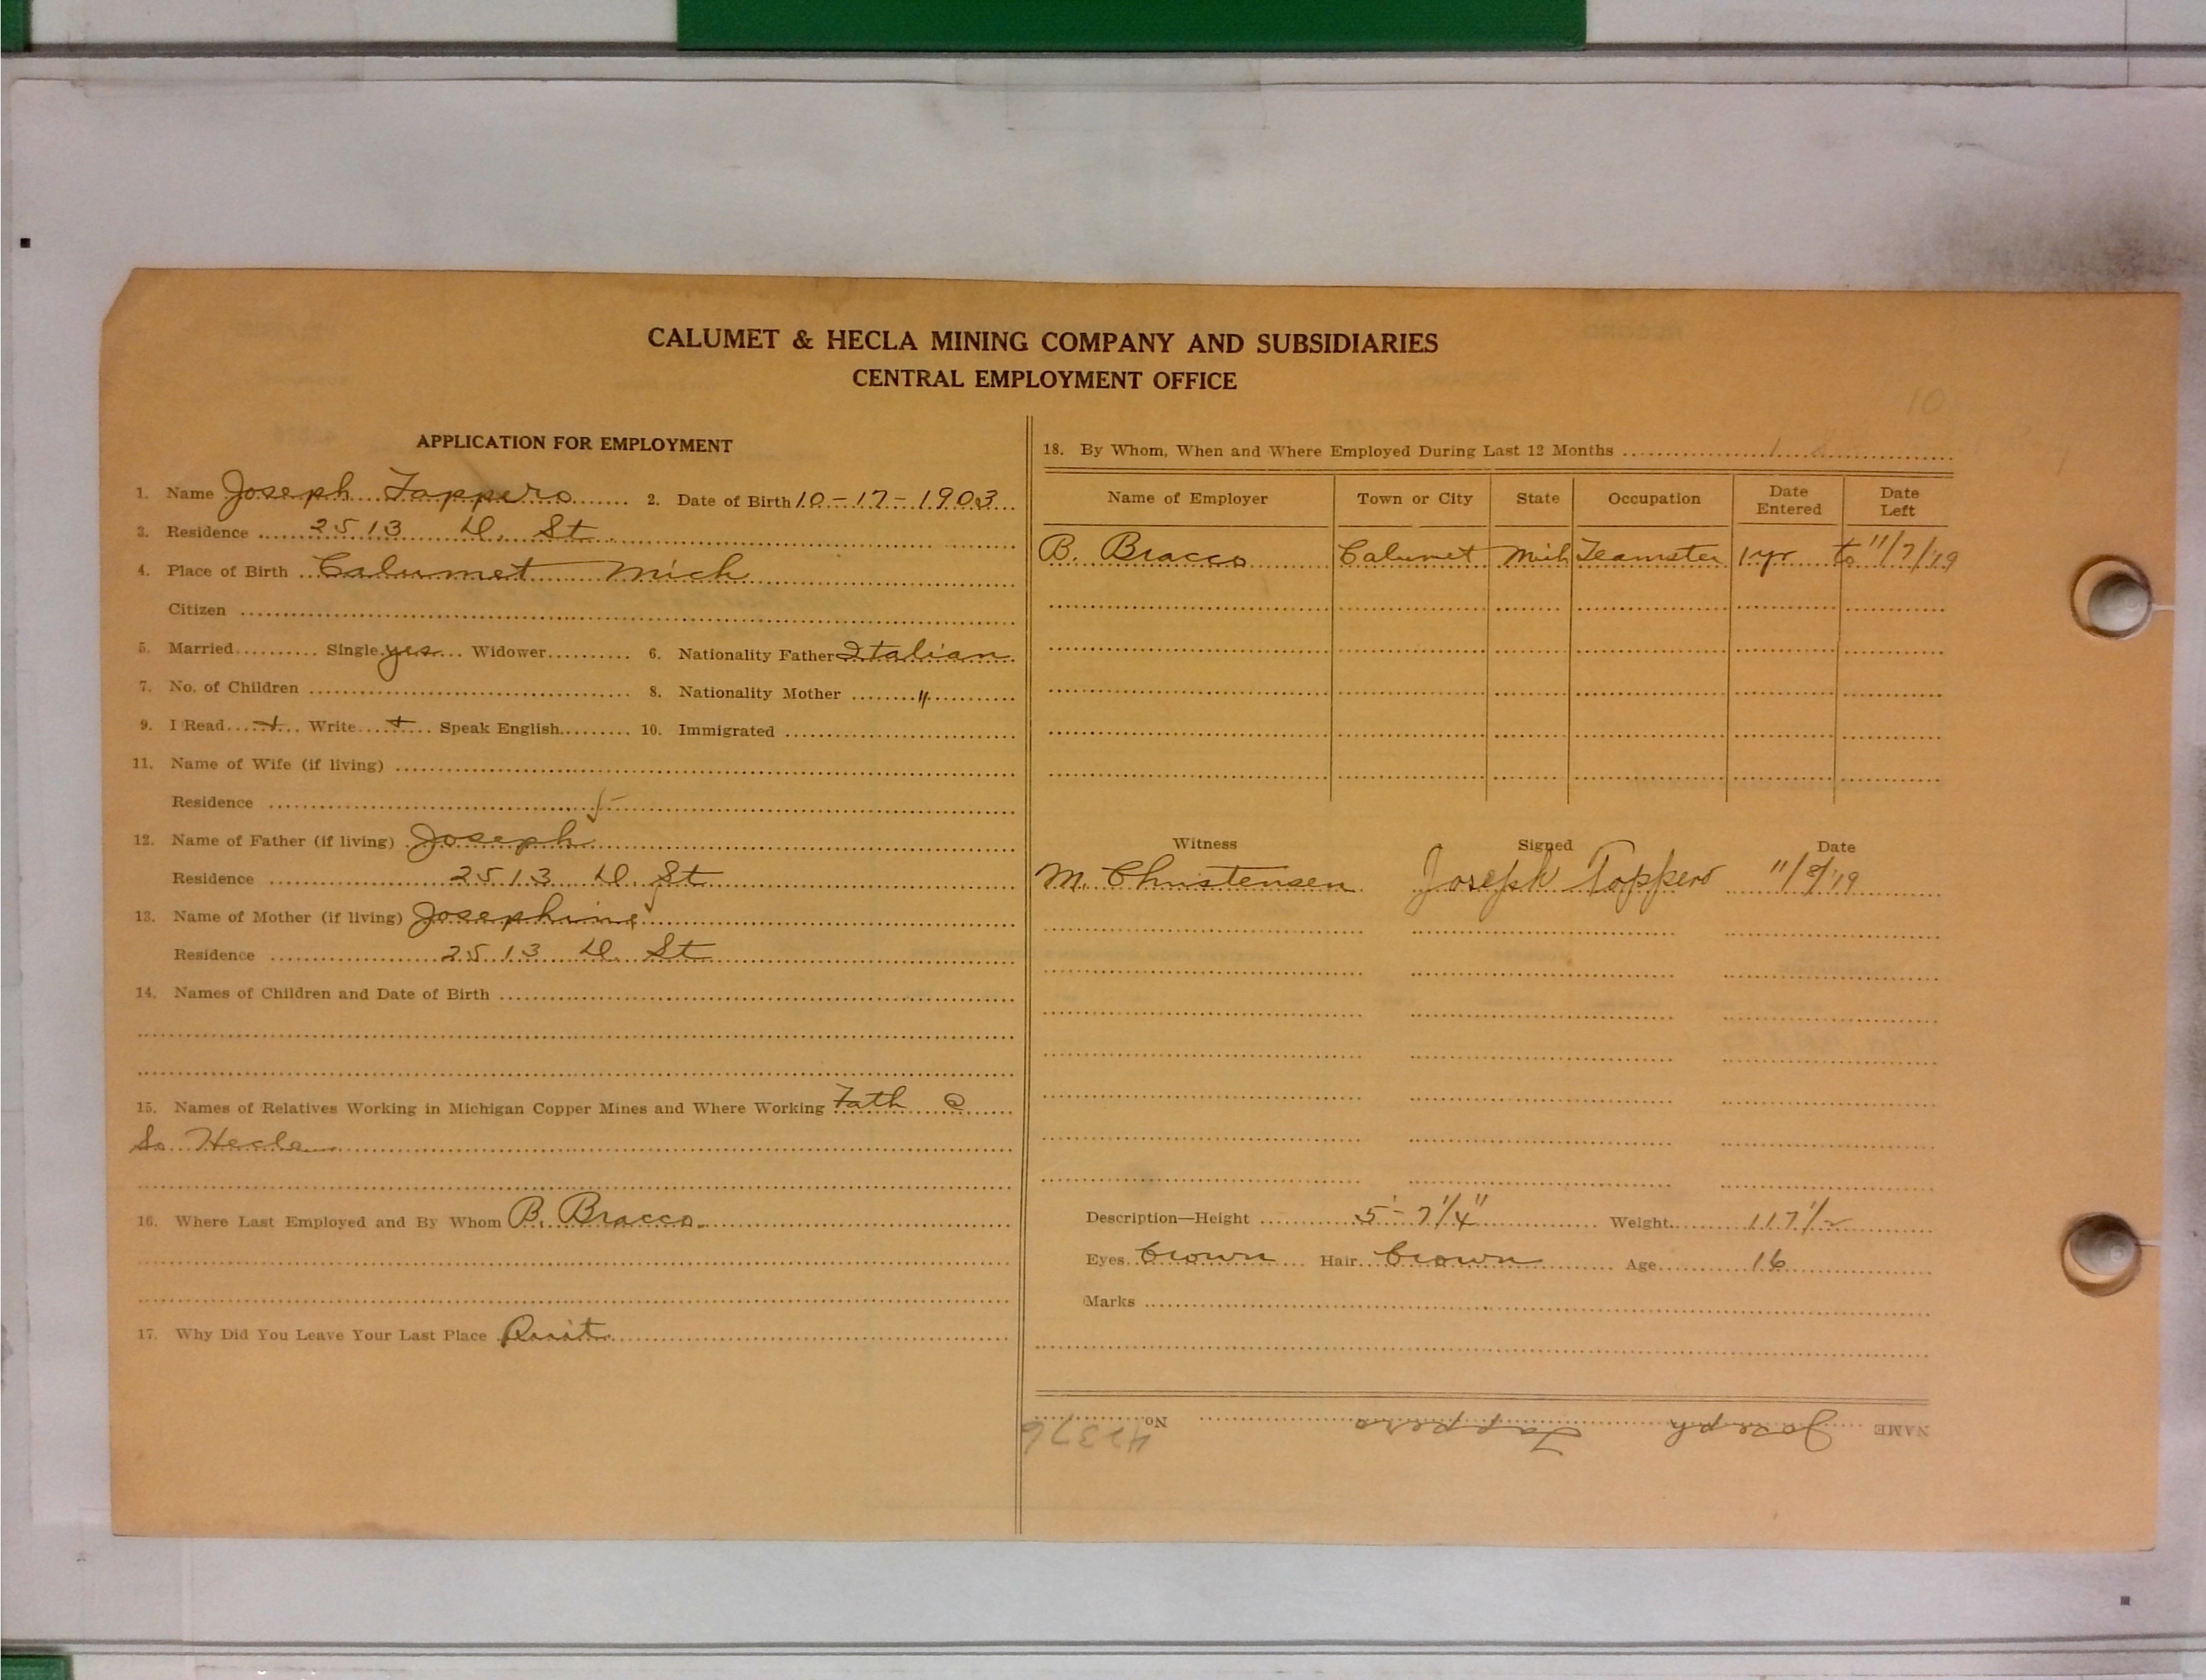 CALUMET & HECLA MINING COMPANY AND SUBSIDIARIES
CENTRAL EMPLOYMENT OFFICE
APPLICATION FOR EMPLOYMENT
1. Name Joseph Tappero 2. Date of Birth 10-17-1903
3. Residence 2513 D. St.
4. Place of Birth Calumet Mich
Citizen
5. Married Single yes Widower 6. Nationality Father Italian
7. No. of Children 8. Nationality Mother "
9. I Read + Write + Speak English 10. Immigrated
11. Name of Wife (if living)
Residence
12. Name of Father (if living) Joseph
Residence 2513 D. St
13. Name of Mother (if living) Josephine
Residence 2513 D. St
14. Names of Children and Date of Birth
15. Names of Relatives Working in Michigan Copper Mines and Where Working Fath @
So. Hecla
16. Where Last Employed and By Whom B. Bracco
17. Why Did You Leave Your Last Place Quit
18. By Whom, When and Where Employed During Last 12 Months
Name of Employer Town or City State Occupation Date Entered Date Left
B. Bracco Calumet Mich Teamster 1 yr to 11/7/19
Witness Signed Date
M. Christensen Joseph Toppero 11/8/19
Description—Height 5'-7 1/4" Weight 117 1/2
Eyes brown Hair brown Age 16
Marks
NAME Joseph Tappero No. 42376
10